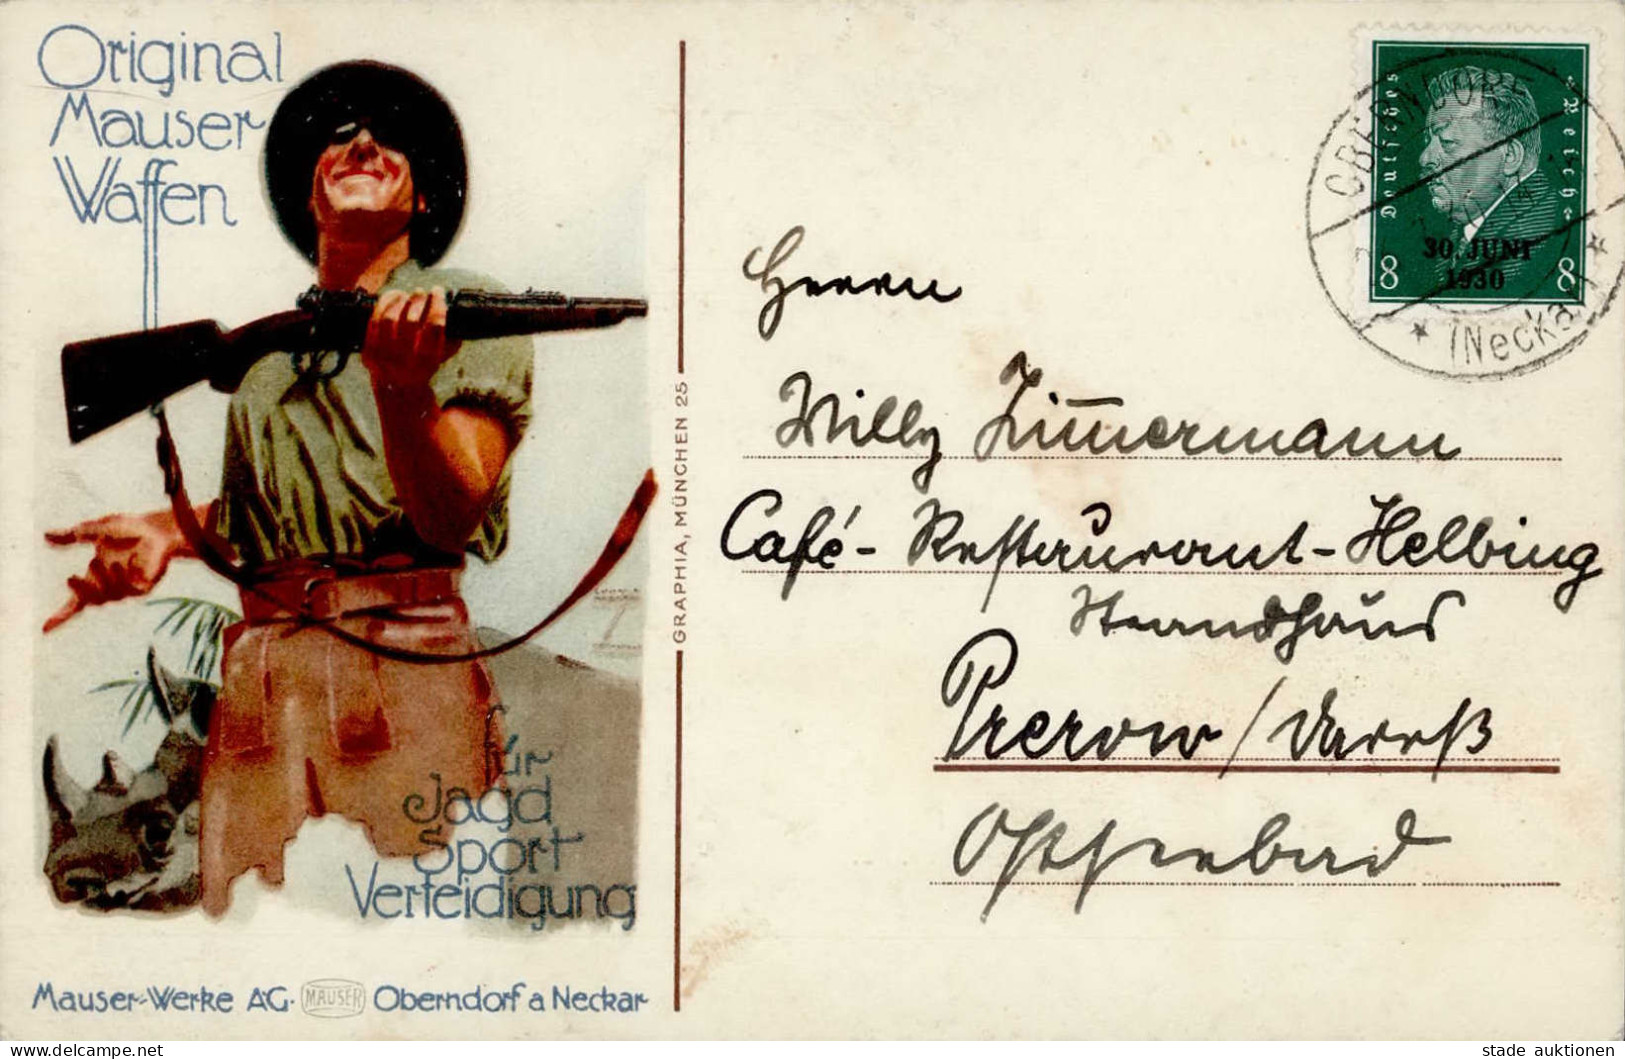 Original
Mauser
Waffen
für
Jagd
Sport
Verteidigung
Mauser-Werke A.G. MAUSER Oberndorf a Neckar
GRAPHIA, MÜNCHEN 25
Deutsches Reich
30. JUNI
1930
8 8
OBERNDORF
(Neckar)
Herrn
Willy Zimmermann
Café-Restaurant-Helbing
Strandhaus
Prerow/Darß
Ostseebad
stade auktionen
www.delcampe.net/stade_auktionen.com